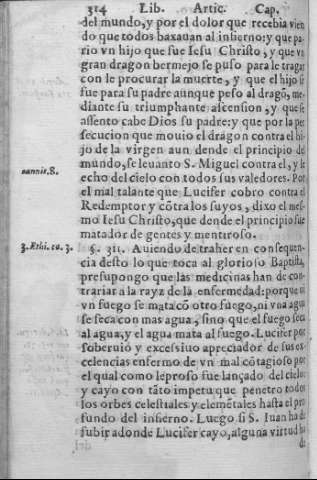 314 Lib. Artic. Cap.
del mundo, y por el dolor que recebia vien
do que todos baxauan al infierno: y que pa
rio vn hijo que fue Iesu Christo, y que vn
gran dragon bermejo se puso para le tragar
con le procurar la muerte, y que el hijo se
fue para su padre aunque peso al dragõ, me
diante su triumphante ascension, y que se
assento cabe Dios su padre: y que por la per
secucion que mouio el dragon contra el hi
jo de la virgen aun dende el principio del
mundo, se leuanto S. Miguel contra el, y le
oannis. 8.
echo del cielo con todos sus valedores. Por
el mal talante que Lucifer cobro contra el
Redemptor y cõtra los suyos, dixo el mes
mo Iesu Christo, que dende el principio fue
matador de gentes y mentiroso.
3. Ethi. ca. 3.
§. III. Auiendo de traher en consequen
cia desto lo que toca al glorioso Baptista,
presupongo que las medicinas han de con
trariar a la rayz de la enfermedad: porque ni
vn fuego se mata cõ otro fuego, ni vna agua
se seca con mas agua, sino que el fuego seca
al agua, y el agua mata al fuego. Lucifer por
soberuio y excessiuo apreciador de sus ex
celencias enfermo de vn mal cõtagioso por
el qual como leproso fue lançado del cielo:
y cayo con tãto impetu que penetro todos
los orbes celestiales y elemẽtales hasta el pro
fundo del infierno. Luego si S. Iuan ha de
subir adonde Lucifer cayo, alguna virtud ha
de